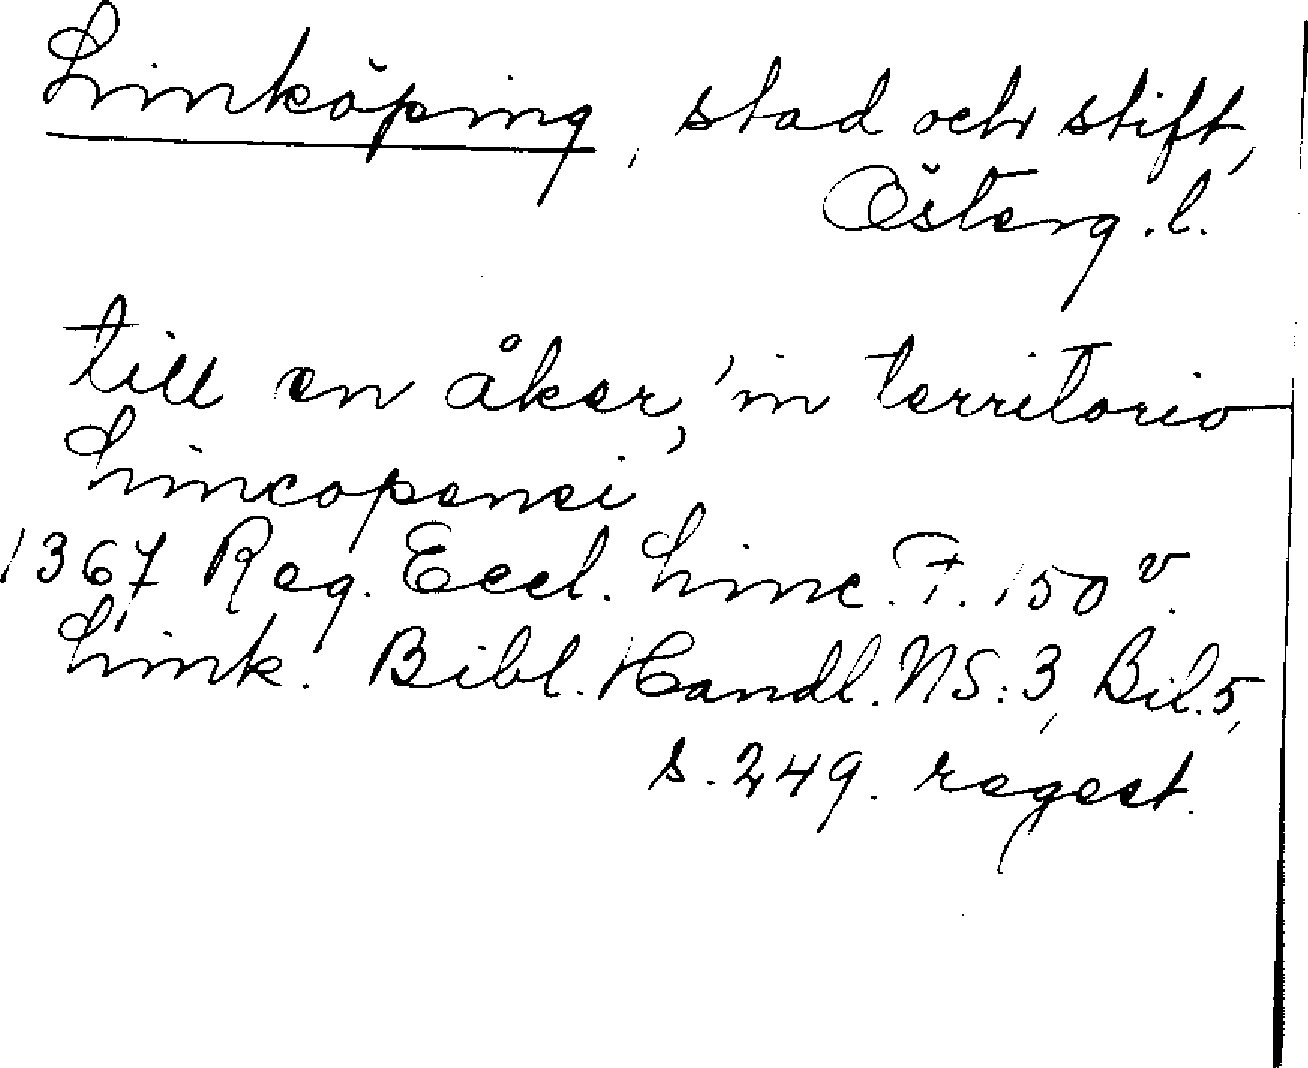 Linköping, stad och stift,
Österg.l.
till en åker, 'in territorio
Lincopensi'
1367 Reg. Eccl. Linc. F. 150 v.
Link. Bibl. Handl. NS:3, Bil.5,
s. 249. regest.